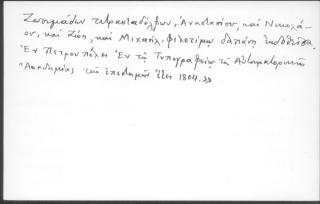 Ζωσιμάδων τετρακταδέλφων, Ἀναστασίου, καὶ Νικολά-
ου, καὶ Ζώη, καὶ Μιχαήλ, φιλοτίμῳ δαπάνῃ ἐκδοθεῖσα.
Ἐν Πετρουπόλει Ἐν τῇ Τυπογραφείῳ τῆς Αὐτοκρατορικῆς
Ἀκαδημίας τῶν ἐπιστημῶν Ἔτει 1804.»